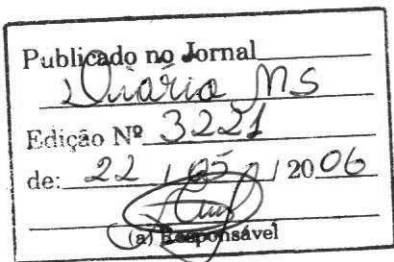 Publicado no Jornal
Diário MS
Edição Nº 3221
de: 22 / 05 / 2006
(a) Responsável